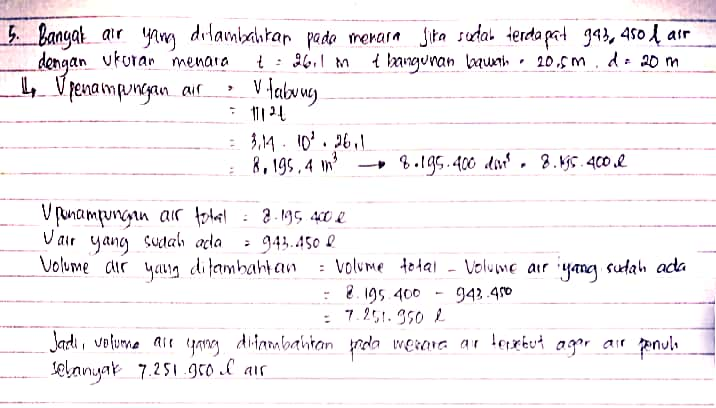 5. Banyak air yang ditambahkan pada menara jika sudah terdapat 943,450 l air
dengan ukuran menara t = 26,1 m t bangunan bawah = 20,5 m. d = 20 m
↳ V penampungan air = V tabung
= πr²t
= 3,14 . 10² . 26,1
= 8,195,4 m³ → 8.195.400 dm³ = 8.195.400 l
V penampungan air total = 8.195 400 l
V air yang sudah ada = 943.450 l
Volume air yang ditambahkan = Volume total - Volume air yang sudah ada
= 8.195.400 - 943.450
= 7.251.950 l
Jadi, volume air yang ditambahkan pada menara air tersebut agar air penuh
sebanyak 7.251.950 l air